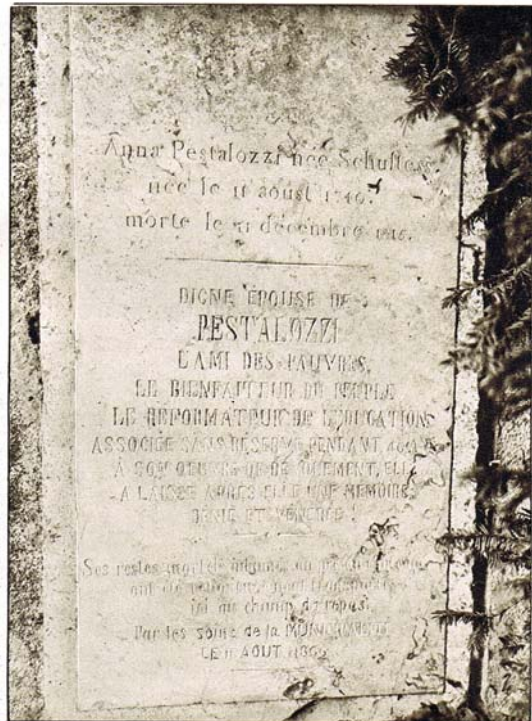 Anna Pestalozzi née
née le 11 aoust 1740.
morte le 11 décembre 1815.
DIGNE ÉPOUSE DE
PESTALOZZI
L'AMI DES PAUVRES,
LE BIENFAITEUR DU PEUPLE
LE RÉFORMATEUR DE L'ÉDUCATION
ASSOCIÉE SANS RÉSERVE PENDANT
À SON OEUVRE DE DÉVOUEMENT, ELLE
A LAISSÉ APRÈS ELLE UNE MÉMOIRE
BÉNIE ET VÉNÉRÉE !
Ses restes mortels
ont été
ici au champ du repos.
Par les soins de la MUNICIPALITÉ
LE 11 AOUT